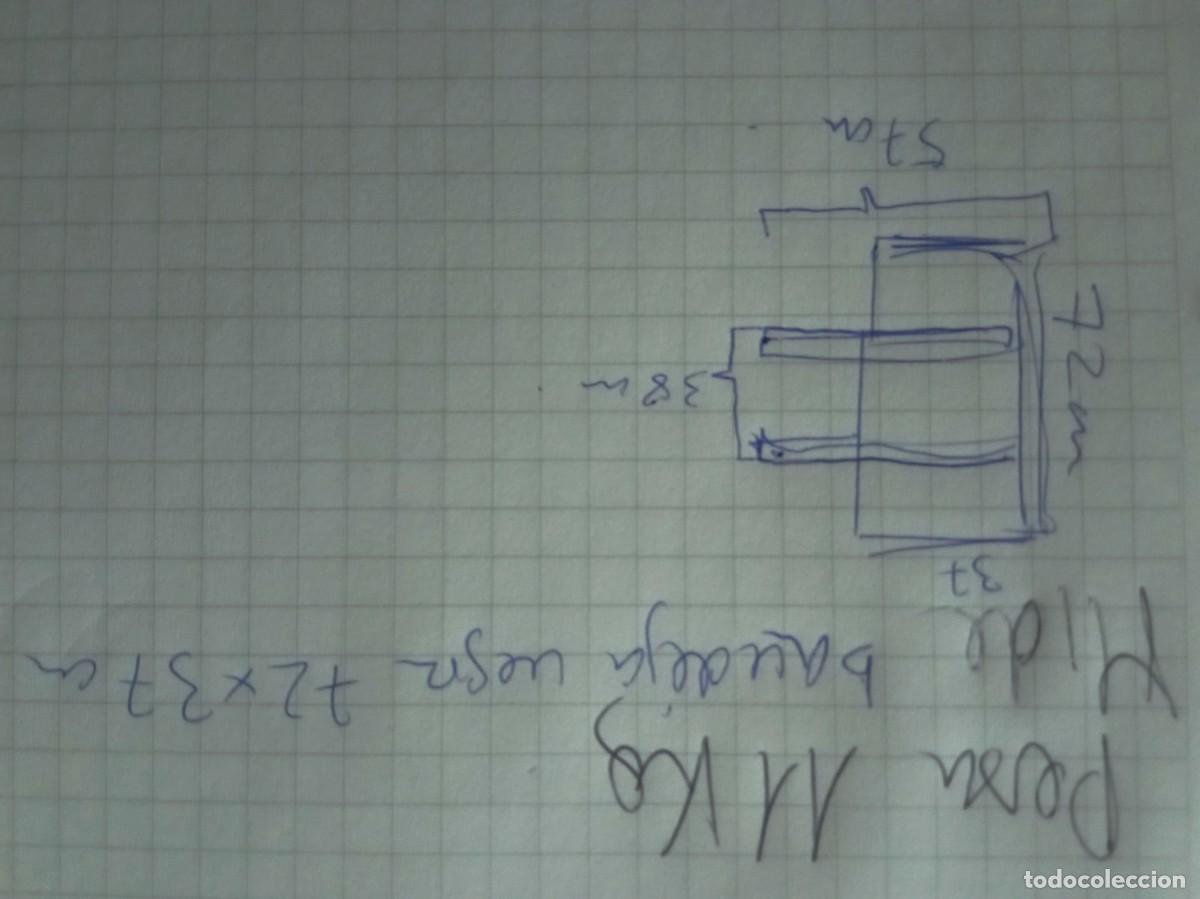 Pesa 11 Kg
Mide bandeja negra 72 x 37 cm
37
72 cm
38 cm
57 cm
todocoleccion